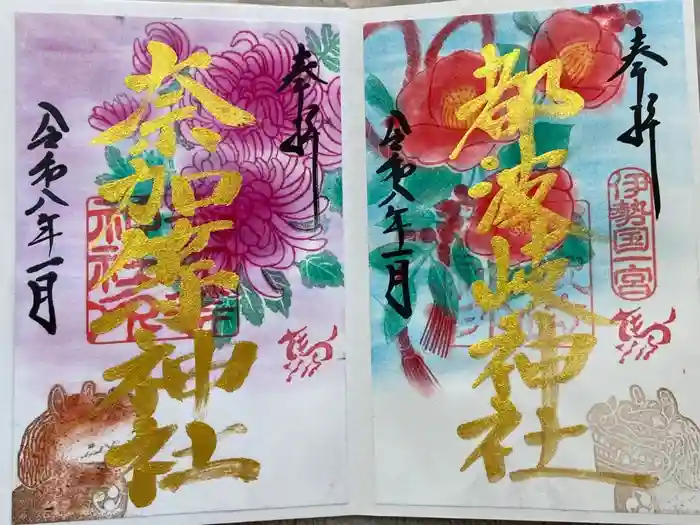 奉拝
伊勢国一宮
都波岐神社
令和八年一月
馬
奉拝
奈加等神社
令和八年一月
馬